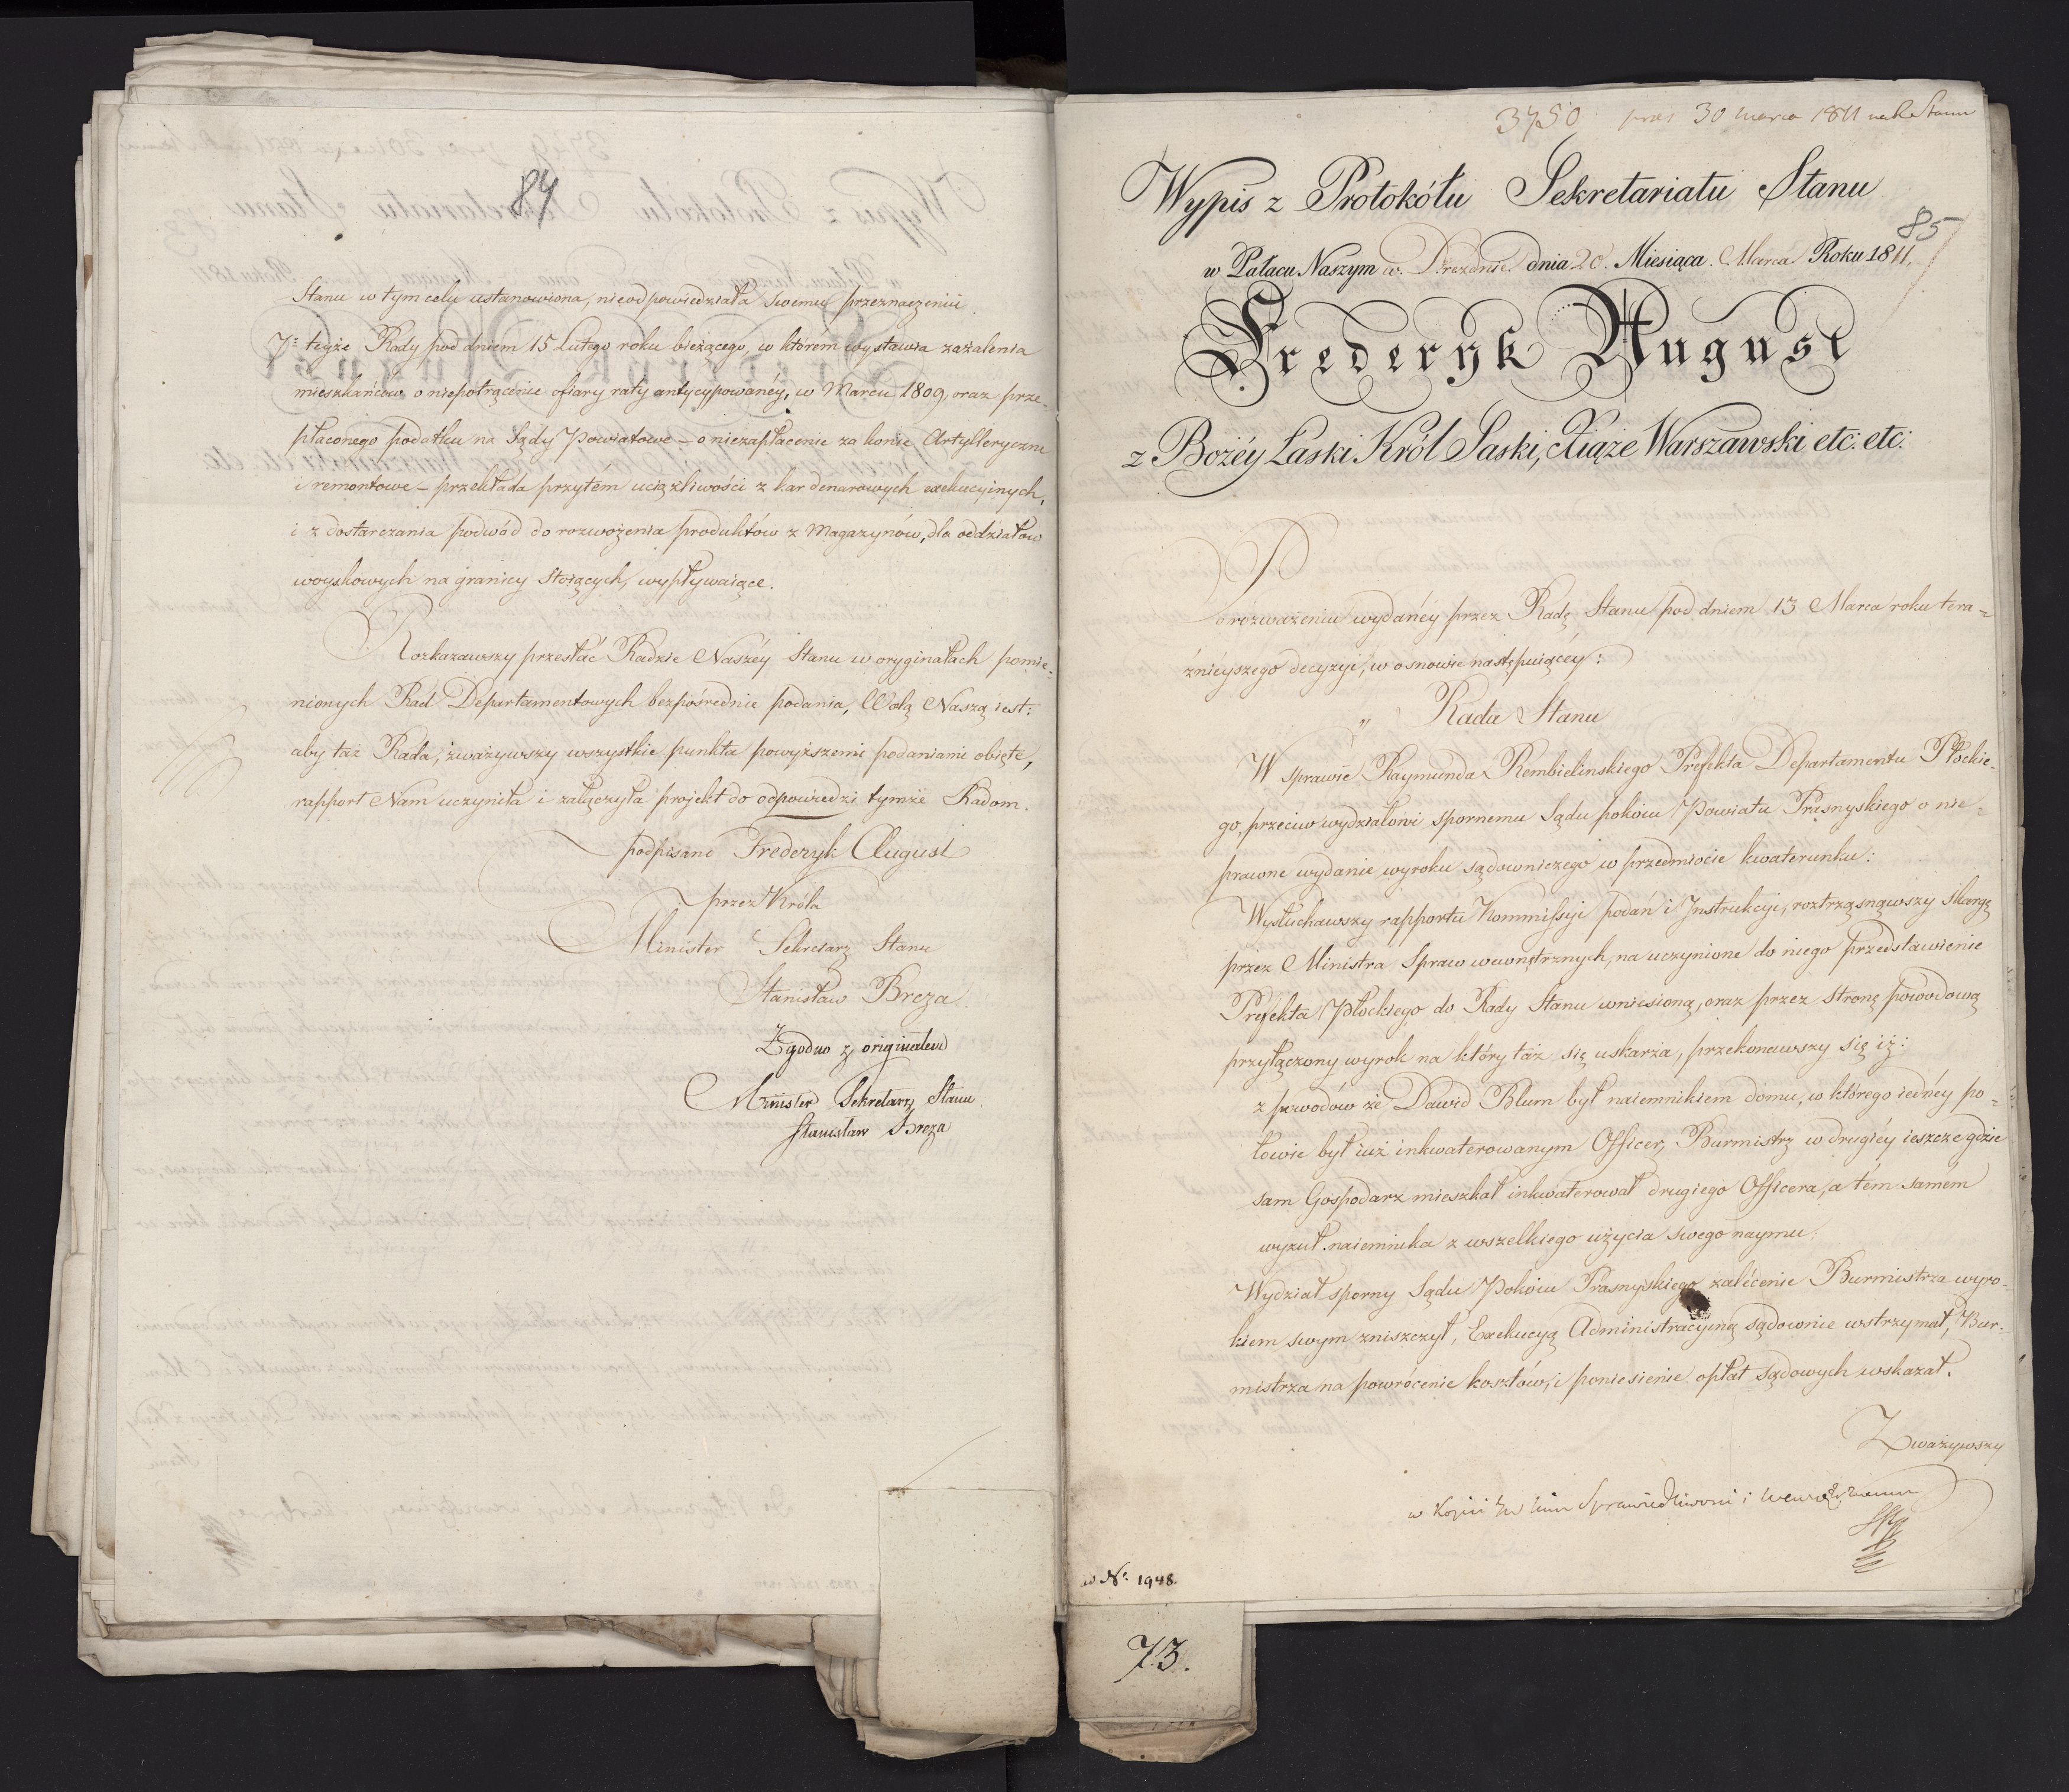 84
Stanu w tym celu ustanowiona, nieodpowiedziała swemu przeznaczeniu.
7º tegże Rady pod dniem 15 Lutego roku bieżącego, w którém wystawia zażalenia
mieszkańców o niepotrącenie ofiary raty antycypowanéy, w Marcu 1809, oraz prze-
płaconego podatku na Sądy Powiatowe – o niezapłacenie za konie Artylleryczne
i remontowe – przekłada przytém uciążliwości z kar denarowych exekucyinych,
i z dostarczania podwód do rozwożenia produktów z Magazynów, dla oddziałów
woyskowych na granicy stojących, wypływaiące.
Rozkazawszy przesłać Radzie Naszéy Stanu w oryginałach pomie-
nionych Rad Departamentowych bezpośrednie podania, Wolą Naszą iest:
aby taż Rada, zważywszy wszystkie punkta powyższemi podaniami obięte,
rapport Nam uczyniła i załączyła projekt do odpowiedzi tymże Radom.
podpisano Fryderyk August
przez Króla
Minister Sekretarz Stanu
Stanisław Breza.
Zgodno z originałem
Minister Sekretarz Stanu
Stanisław Breza
3750 prez 30 marca 1811 na R Stanu
Wypis z Protokółu Sekretariatu Stanu
85
w Pałacu Naszym w. Dreznie dnia 20. Miesiąca. Marca Roku 1811.
Fryderyk August
z Bożéy Łaski Król Saski, Xiąże Warszawski etc: etc:
Po rozważeniu wydanéy przez Radę Stanu pod dniem 13 Marca roku tera-
źnieyszego decyzyi, w osnowie następuiącéy:
„ Rada Stanu
W sprawie Raymunda Rembielinskiego Prefekta Departamentu Płockie-
go, przeciw wydziałowi spornemu Sądu pokoiu Powiatu Prasnyskiego o nie-
prawne wydanie wyroku sądowniczego w przedmiocie kwaterunku:
Wysłuchawszy rapportu Kommissyi podań i Instrukcyi, roztrząsnąwszy skargę
przez Ministra Spraw wewnętrznych, na uczynione do niego przedstawienie
Prefekta Płockiego do Rady Stanu wniesioną, oraz przez stronę powodową
przyłączony wyrok na który taż się uskarża, przekonawszy się iż:
z powodów że Dawid Blum był naiemnikiem domu, w którego iednéy po-
łowie był iuż inkwaterowanym Officer, Burmistrz w drugiéy ieszcze gdzie
sam Gospodarz mieszkał inkwaterował drugiego Officera, a tém samém
wyzuł naiemnika z wszelkiego użycia swego naymu.
Wydział sporny Sądu Pokoiu Prasnyskiego zalécenie Burmistrza wyro-
kiem swym zniszczył, Exekucyą Administracyiną sądownie wstrzymał, Bur-
mistrza na powrócenie kosztów, i poniesienie opłat sądowych wskazał.
Zważywszy
w Kopii Sprawiedliwości i
ad Nº 1948.
73.